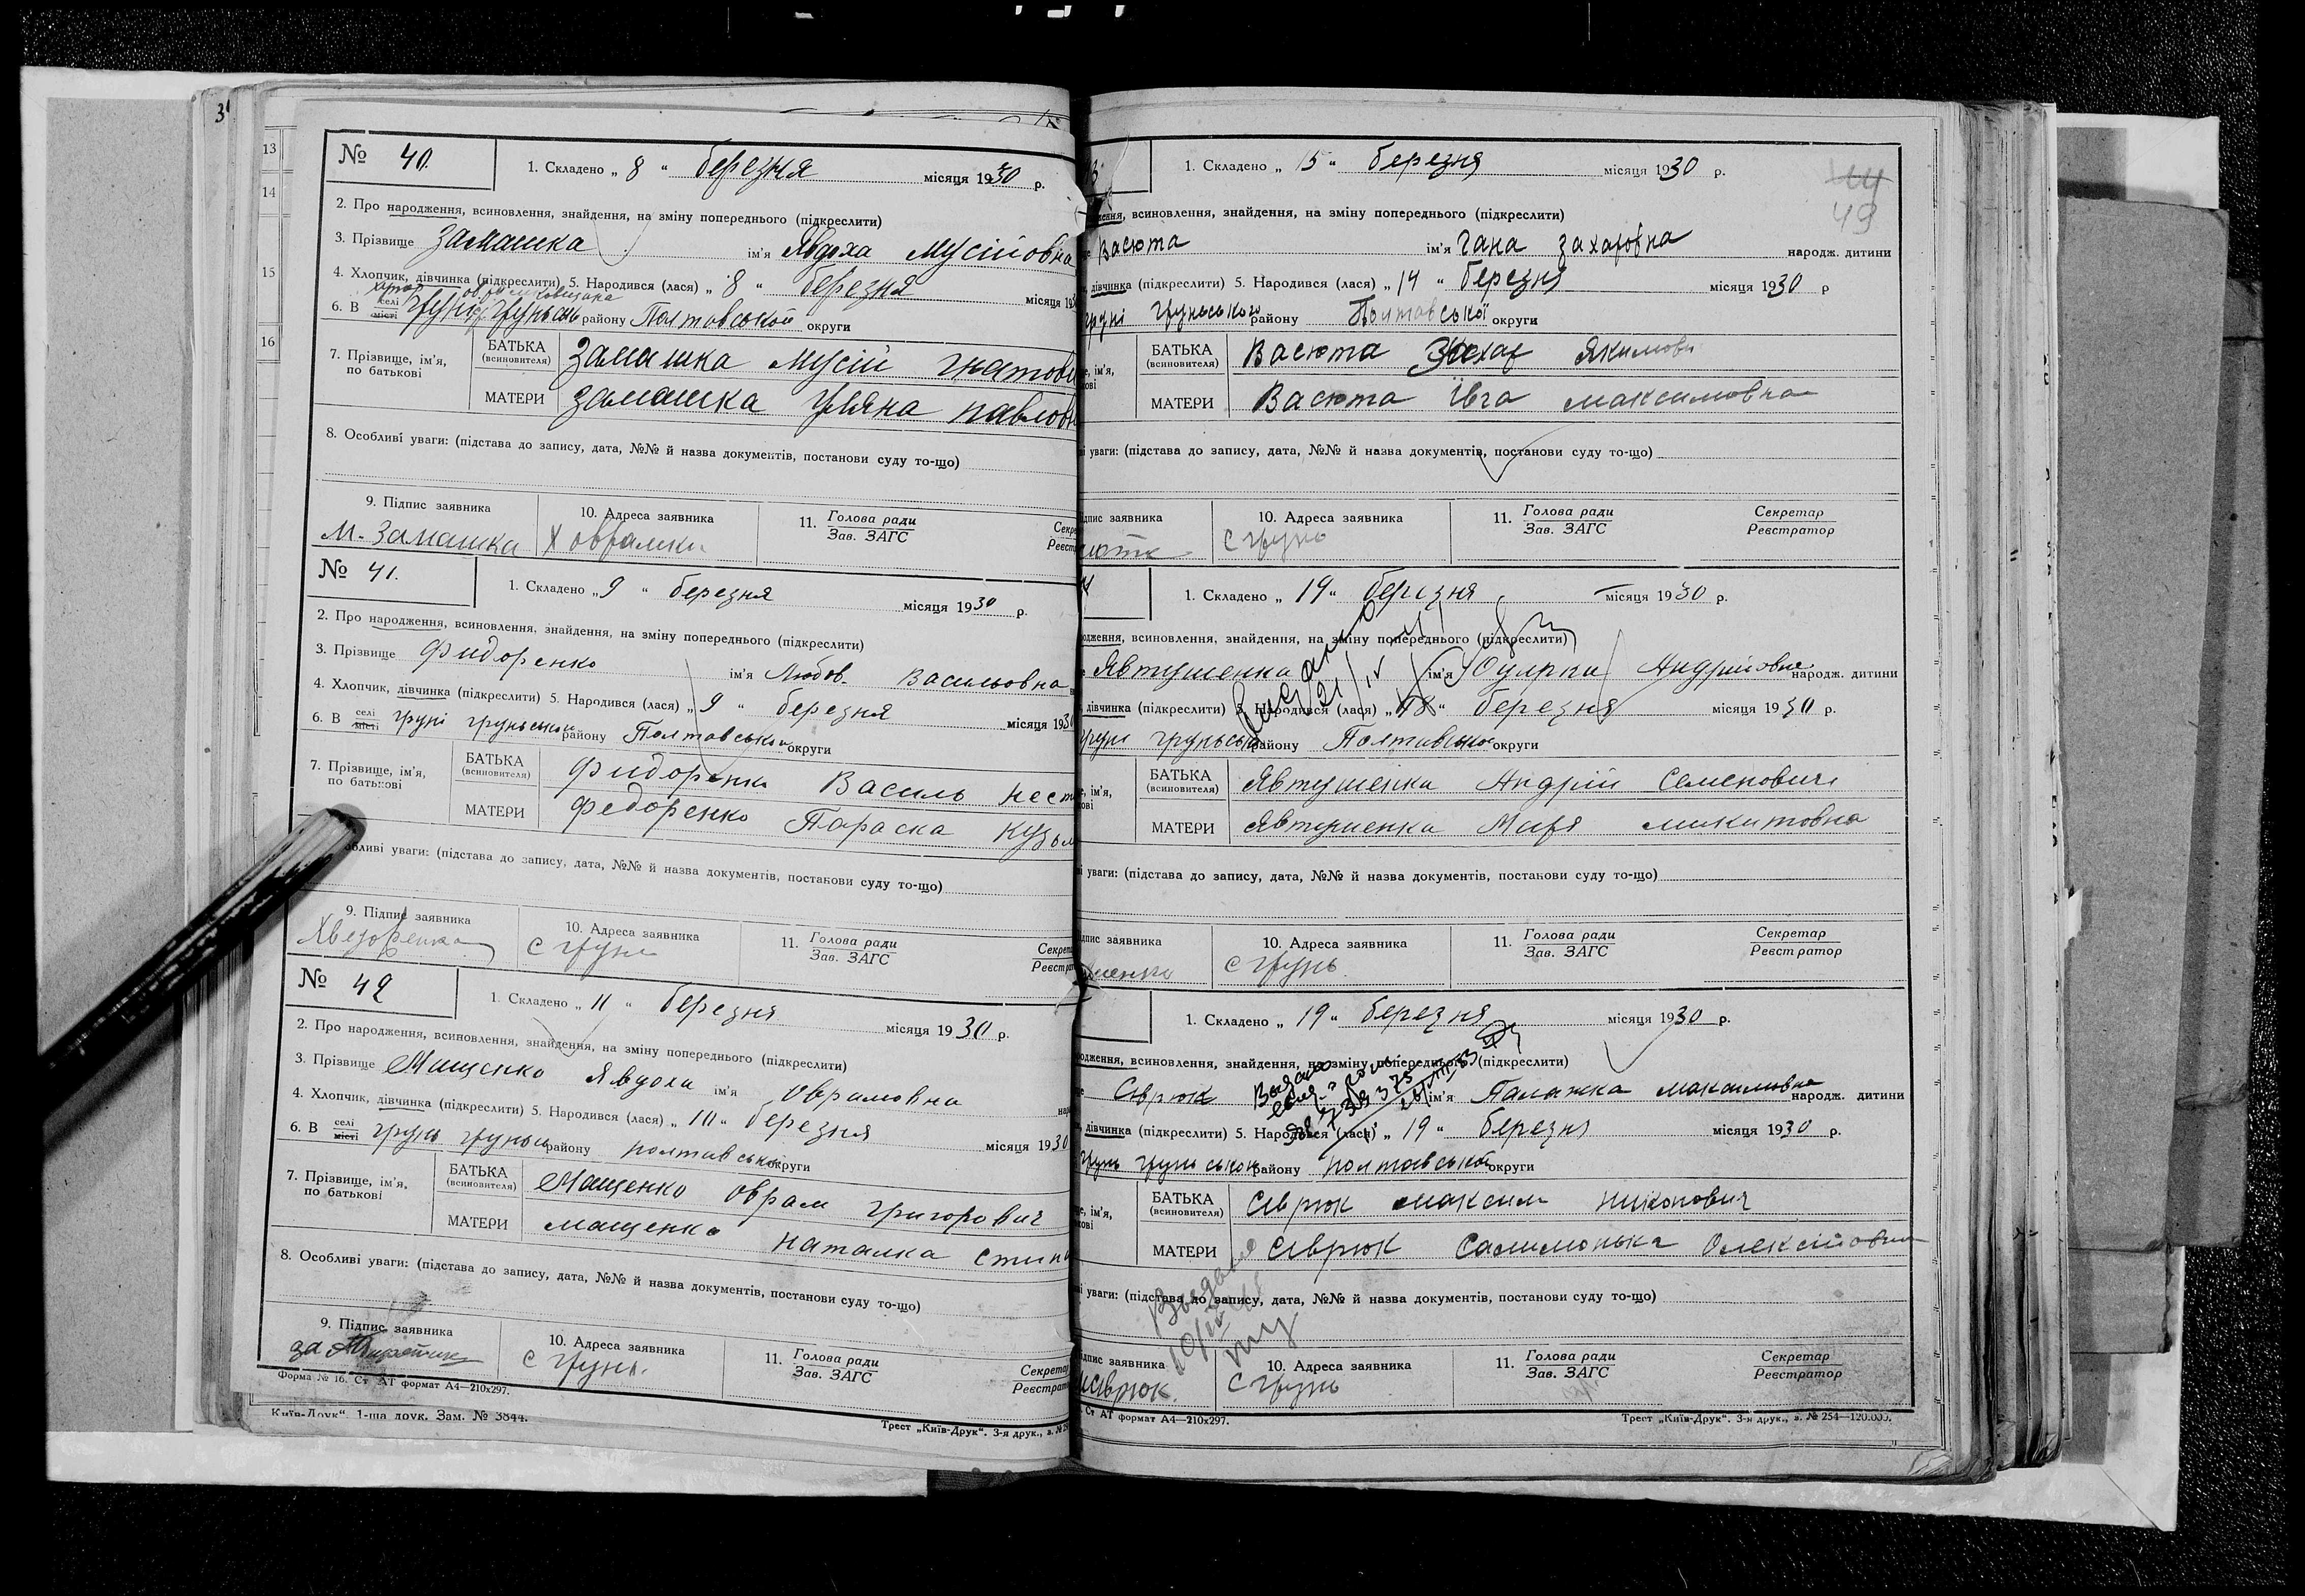 3
13
14
15
16
№ 40.
1. Складено „ 8 “ березня місяця 1930 р.
2. Про народження, всиновлення, знайдення, на зміну попереднього (підкреслити)
3. Прізвище Замашка ім'я Явдоха Мусійовна
4. Хлопчик, дівчинка (підкреслити) 5. Народився (лася) „ 8 “ березня місяця 19
6. В селі/місті району Полтавськой округи
7. Прізвище, ім'я, по батькові
БАТЬКА (всиновителя) Замашка Мусій Гнатови
МАТЕРИ Замашка Уляна Павловн
8. Особливі уваги: (підстава до запису, дата, №№ й назва документів, постанови суду то-що)
9. Підпис заявника 10. Адреса заявника 11. Голова ради / Зав. ЗАГС
М. Замашка Х Оврамки
№ 41.
1. Складено „ 9 “ березня місяця 1930 р.
2. Про народження, всиновлення, знайдення, на зміну попереднього (підкреслити)
3. Прізвище Фидоренко ім'я Любов Васильовна
4. Хлопчик, дівчинка (підкреслити) 5. Народився (лася) „ 9 “ березня місяця 1930
6. В селі/місті груні груньськои району Полтавськои округи
7. Прізвище, ім'я, по батькові
БАТЬКА (всиновителя) Фидоренко Василь Нест
МАТЕРИ Федоренко Параска Кузьм
обливі уваги: (підстава до запису, дата, №№ й назва документів, постанови суду то-що)
9. Підпис заявника 10. Адреса заявника 11. Голова ради / Зав. ЗАГС
Хведоренко с грунь
№ 42
1. Складено „ 11 “ березня місяця 1930 р.
2. Про народження, всиновлення, знайдення, на зміну попереднього (підкреслити)
3. Прізвище Мащенко Явдоха ім'я Оврамовна
4. Хлопчик, дівчинка (підкреслити) 5. Народився (лася) „ 10 “ березня місяця 1930
6. В селі/місті грунь району полтавськои округи
7. Прізвище, ім'я, по батькові
БАТЬКА (всиновителя) Мащенко Оврам Григорович
МАТЕРИ Мащенко Наталка Степ
8. Особливі уваги: (підстава до запису, дата, №№ й назва документів, постанови суду то-що)
9. Підпис заявника 10. Адреса заявника 11. Голова ради / Зав. ЗАГС
за с грунь
Форма № 16. Ст АТ формат А4—210х297.
Київ-Друк“. 1-ша друк. Зам. № 3844.
Трест „Київ-Друк“. 3-я друк., з. №
49
1. Складено „ 15 “ березня місяця 1930 р.
всиновлення, знайдення, на зміну попереднього (підкреслити)
Васюта ім'я Гана Захаровна народж. дитини
дівчинка (підкреслити) 5. Народився (лася) „ 14 “ березня місяця 1930 р
груні груньського району Полтавської округи
БАТЬКА (всиновителя) Васюта Захар Якимови
МАТЕРИ Васюта Ївга Максимовна
уваги: (підстава до запису, дата, №№ й назва документів, постанови суду то-що)
заявника 10. Адреса заявника 11. Голова ради / Зав. ЗАГС Секретар / Реєстратор
с грунь
1. Складено „ 19 “ березня місяця 1930 р.
всиновлення, знайдення, на зміну попереднього (підкреслити)
Явтушенка ім'я Андрійовна народж. дитини
дівчинка (підкреслити) 5. Народився (лася) „ 18 “ березня місяця 1930 р.
груні району Полтавськой округи
БАТЬКА (всиновителя) Явтушенка Андрій Семенович
МАТЕРИ Явтушенка Маря Микитовна
уваги: (підстава до запису, дата, №№ й назва документів, постанови суду то-що)
заявника 10. Адреса заявника 11. Голова ради / Зав. ЗАГС Секретар / Реєстратор
с грунь.
1. Складено „ 19 “ березня місяця 1930 р.
всиновлення, знайдення, на зміну попереднього (підкреслити)
Сіврюк ім'я Палажка Максимовна народж. дитини
дівчинка (підкреслити) 5. Народився (лася) „ 19 “ березня місяця 1930 р.
грунь груньськои району полтавськой округи
БАТЬКА (всиновителя) Сіврюк Максим Никонович
МАТЕРИ Сіврюк Саламонька Олексійовна
уваги: (підстава до запису, дата, №№ й назва документів, постанови суду то-що)
заявника 10. Адреса заявника 11. Голова ради / Зав. ЗАГС Секретар / Реєстратор
Сіврюк. с грунь
Ст АТ формат А4—210х297.
Трест „Київ-Друк“. 3-я друк., з. № 254—120.000.